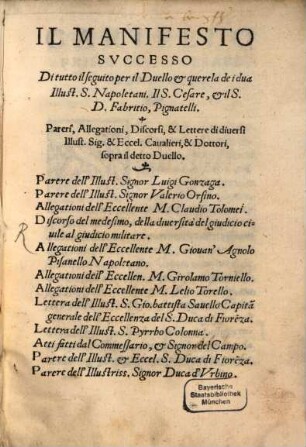 IL MANIFESTO
SVCCESSO
Di tutto il seguito per il Duello & querela de i dua
Illust. S. Napoletani. Il S. Cesare, & il S.
D. Fabritio, Pignatelli.
Pareri, Allegationi, Discorsi, & Lettere di diuersi
Illust. Sig. & Eccel. Caualieri, & Dottori,
sopra il detto Duello.
Parere dell'Illust. Signor Luigi Gonzaga.
Parere dell'Illust. Signor Valerio Orsino.
Allegationi dell'Eccellente M. Claudio Tolomei.
Discorso del medesimo, della diuersità del giudicio ci-
uile al giudicio militare.
Allegationi dell'Eccellente M. Giouan' Agnolo
Pisanello Napoletano.
Allegationi dell'Eccellen. M. Girolamo Torniello.
Allegationi dell'Eccellente M. Lelio Torello.
Lettera dell'Illust. S. Gio. battista Sauello Capitã
generale dell'Eccellenza del S. Duca di Fiorẽza.
Lettera dell'Illust. S. Pyrrho Colonna.
Atti fatti dal Commessario, & Signor del Campo.
Parere dell'Illust. & Eccel. S. Duca di Fiorẽza.
Parere dell'Illustriss. Signor Duca d'Vrbino.
Bayerische
Staatsbibliothek
München